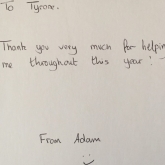 To Tyrone.
Thank you very much for helping
me throughout this year!
From Adam